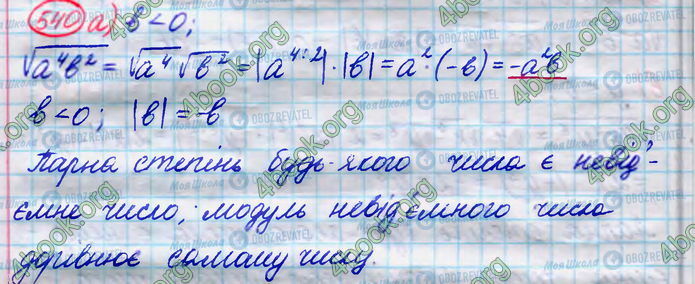 540 а) в < 0;
√a⁴в² = √a⁴ √в² = |a⁴:²| · |в| = a² · (-в) = -a²в
в < 0; |в| = -в
Парна степінь будь-якого числа є невід'-
ємне число, модуль невід'ємного числа
дорівнює самому числу.